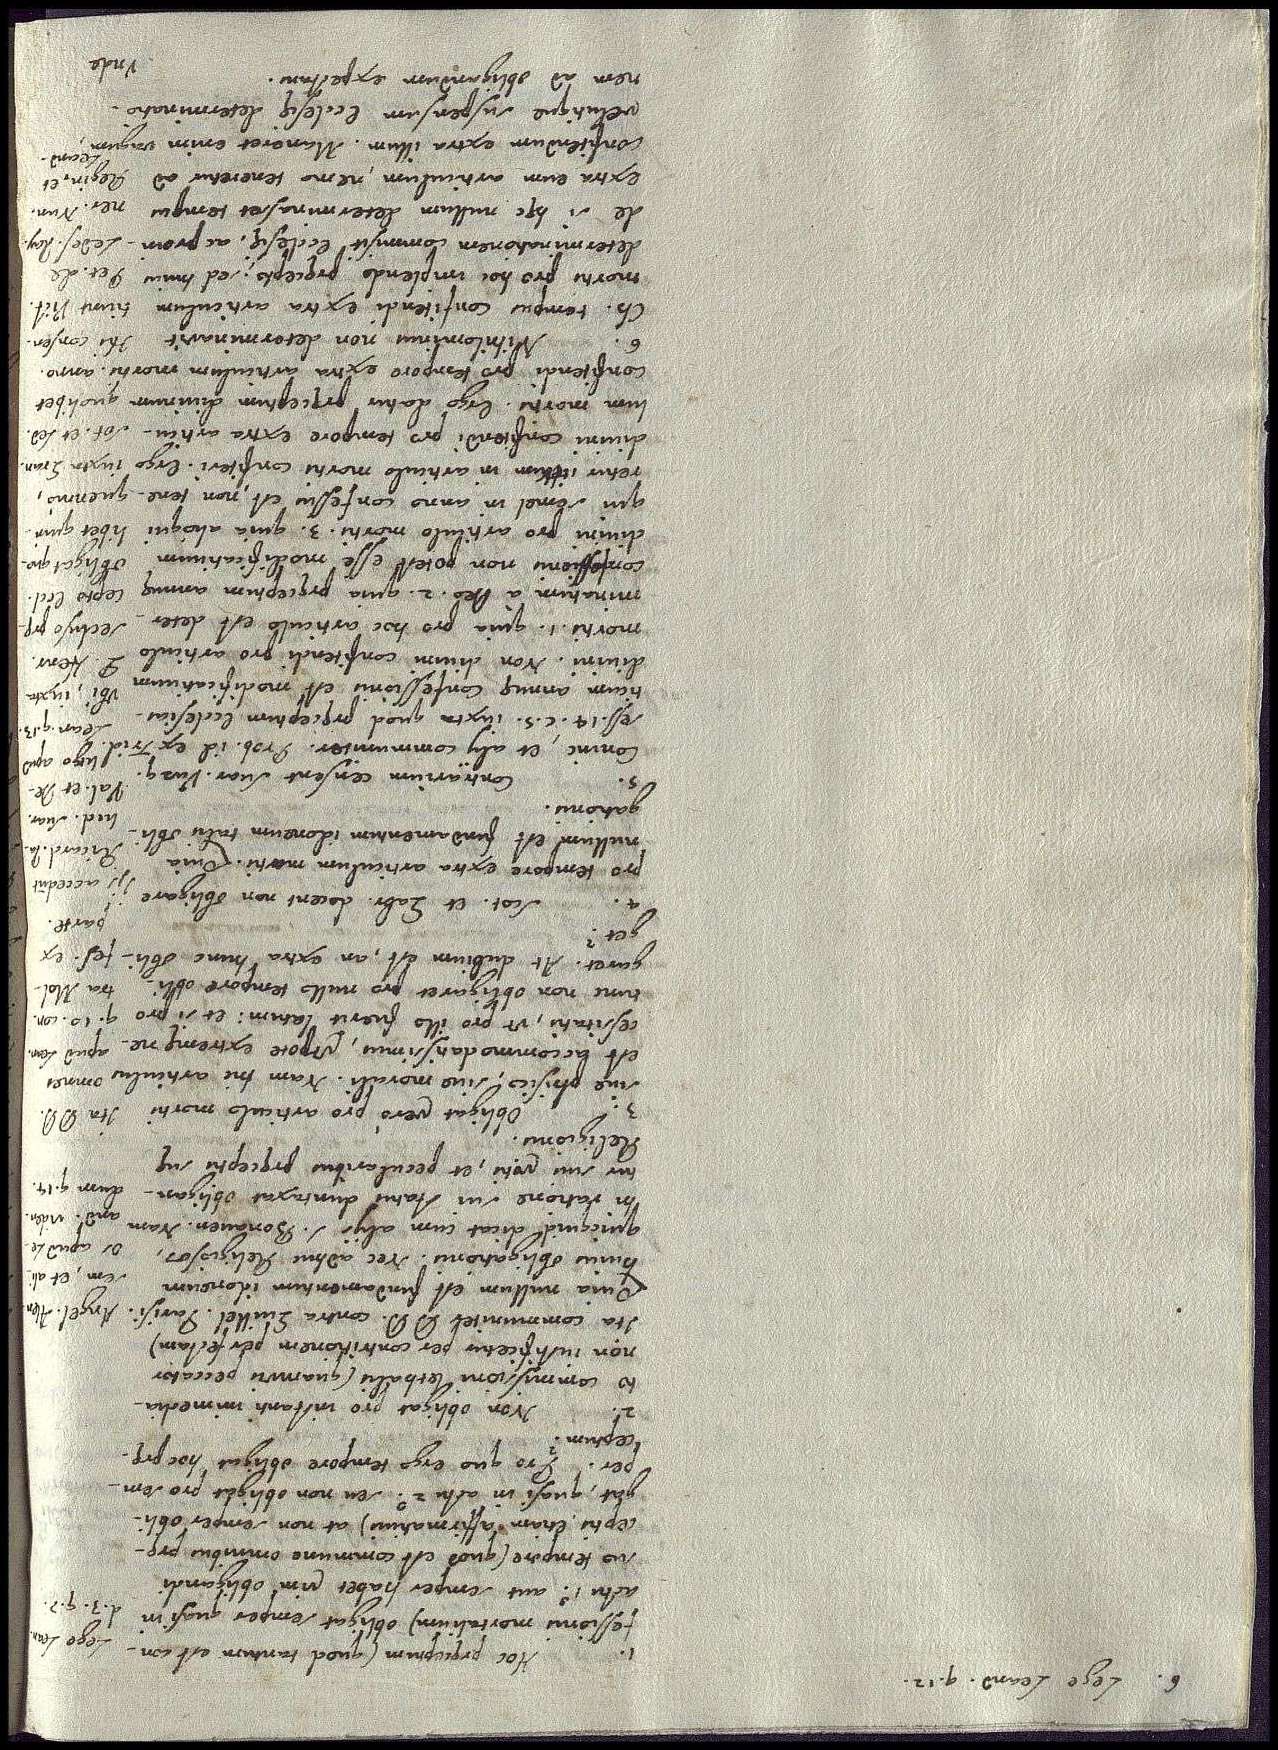 6. Lege Leand. q.12.
1. Hoc pręceptum (quod tantum est con-
fessionis mortalium) obligat semper quasi in
actu 1.º aut semper habet vim obligandi
suo tempore (quod est commune omnibus prę-
ceptis etiam affirmatiuis) at non semper obli-
gat, quasi in actu 2.º: seu non obligat pro sem-
per. Pro quo ergo tempore obligat hoc prę-
ceptum?
2. Non obligat pro instanti immedia-
to commissioni lethalis (quamuis peccator
non iustificetur per contritionem perfectam)
Ita communiter DD. contra Guillel. Parisi.
Quia nullum est fundamentum idoneum
huius obligationis. Nec adhuc Religiosos,
quicquid dicat cum alijs s. Bonauen. Nam
hi ratione sui status duntaxat obligan-
tur sui votis, et peculiaribus pręceptis suę
Religionis.
3. Obligat vero pro articulo mortis
siue physico, siue morali. Nam hic articulus
est accommodatissimus, vtpote extremę ne-
cessitatis, vt pro illo fuerit latum: et si pro
tunc non obligaret pro nullo tempore obli-
garet. At dubium est, an extra hunc obli-
get?
4. Scot. et Gabr. docent non obligare
pro tempore extra articulum mortis. Quia
nullum est fundamentum idoneum talis obli-
gationis.
5. Contrarium censent Suar. Vazq.
Coninc, et alij communiter. Prob. id ex Trid.
sess. 14. c. 5. iuxta quod pręceptum Ecclesias-
ticum annuę confessionis est modificatiuum
diuini. Non diuini confitendi pro articulo
mortis. 1. quia pro hoc articulo est deter-
minatum a Deo. 2. quia pręceptum annuę
confessionis non potest esse modificatiuum
diuini pro articulo mortis. 3. quia alioqui
qui semel in anno confessus est, non tene-
retur iterum in articulo mortis confiteri. Ergo
diuini confitendi pro tempore extra articu-
lum mortis. Ergo datur pręceptum diuinum
confitendi pro tempore extra articulum mortis.
6. Nihilominus non determinauit
Ch. tempus confitendi extra articulum
mortis pro hoc implendo pręcepto; sed huius
determinationem commisit Ecclesię, ac proin-
de si hęc nullum determinasset tempus
extra eum articulum, nemo teneretur ad
confitendum extra illum. Maneret enim vagum,
velutique suspensum Ecclesię determinatio-
nem ad obligandum expectans.
Vnde
Lege Lean.
d. 3. q. 7.
Angel. Alen
sem, et ali
os apud Le-
and. viden-
dum q. 14.
Ita DD.
omnes
apud Lean.
q. 10. con-
tra Mal-
fes. ex
parte.
ijs accedũt
Ricard. Pa-
lud. Suar.
Val. et De
lugo apud
Lean. q. 13.
Vbi, iuxta
D. Henr.
secluso prę-
cepto Eccl.
obligat quo-
libet quin-
quennio,
iuxta Gran.
Sot. et Led.
quolibet
anno.
Ibi consen-
tiunt Vict.
Pet. de
Ledes. Ray-
ner. Nun.
Regin. et
Leand.